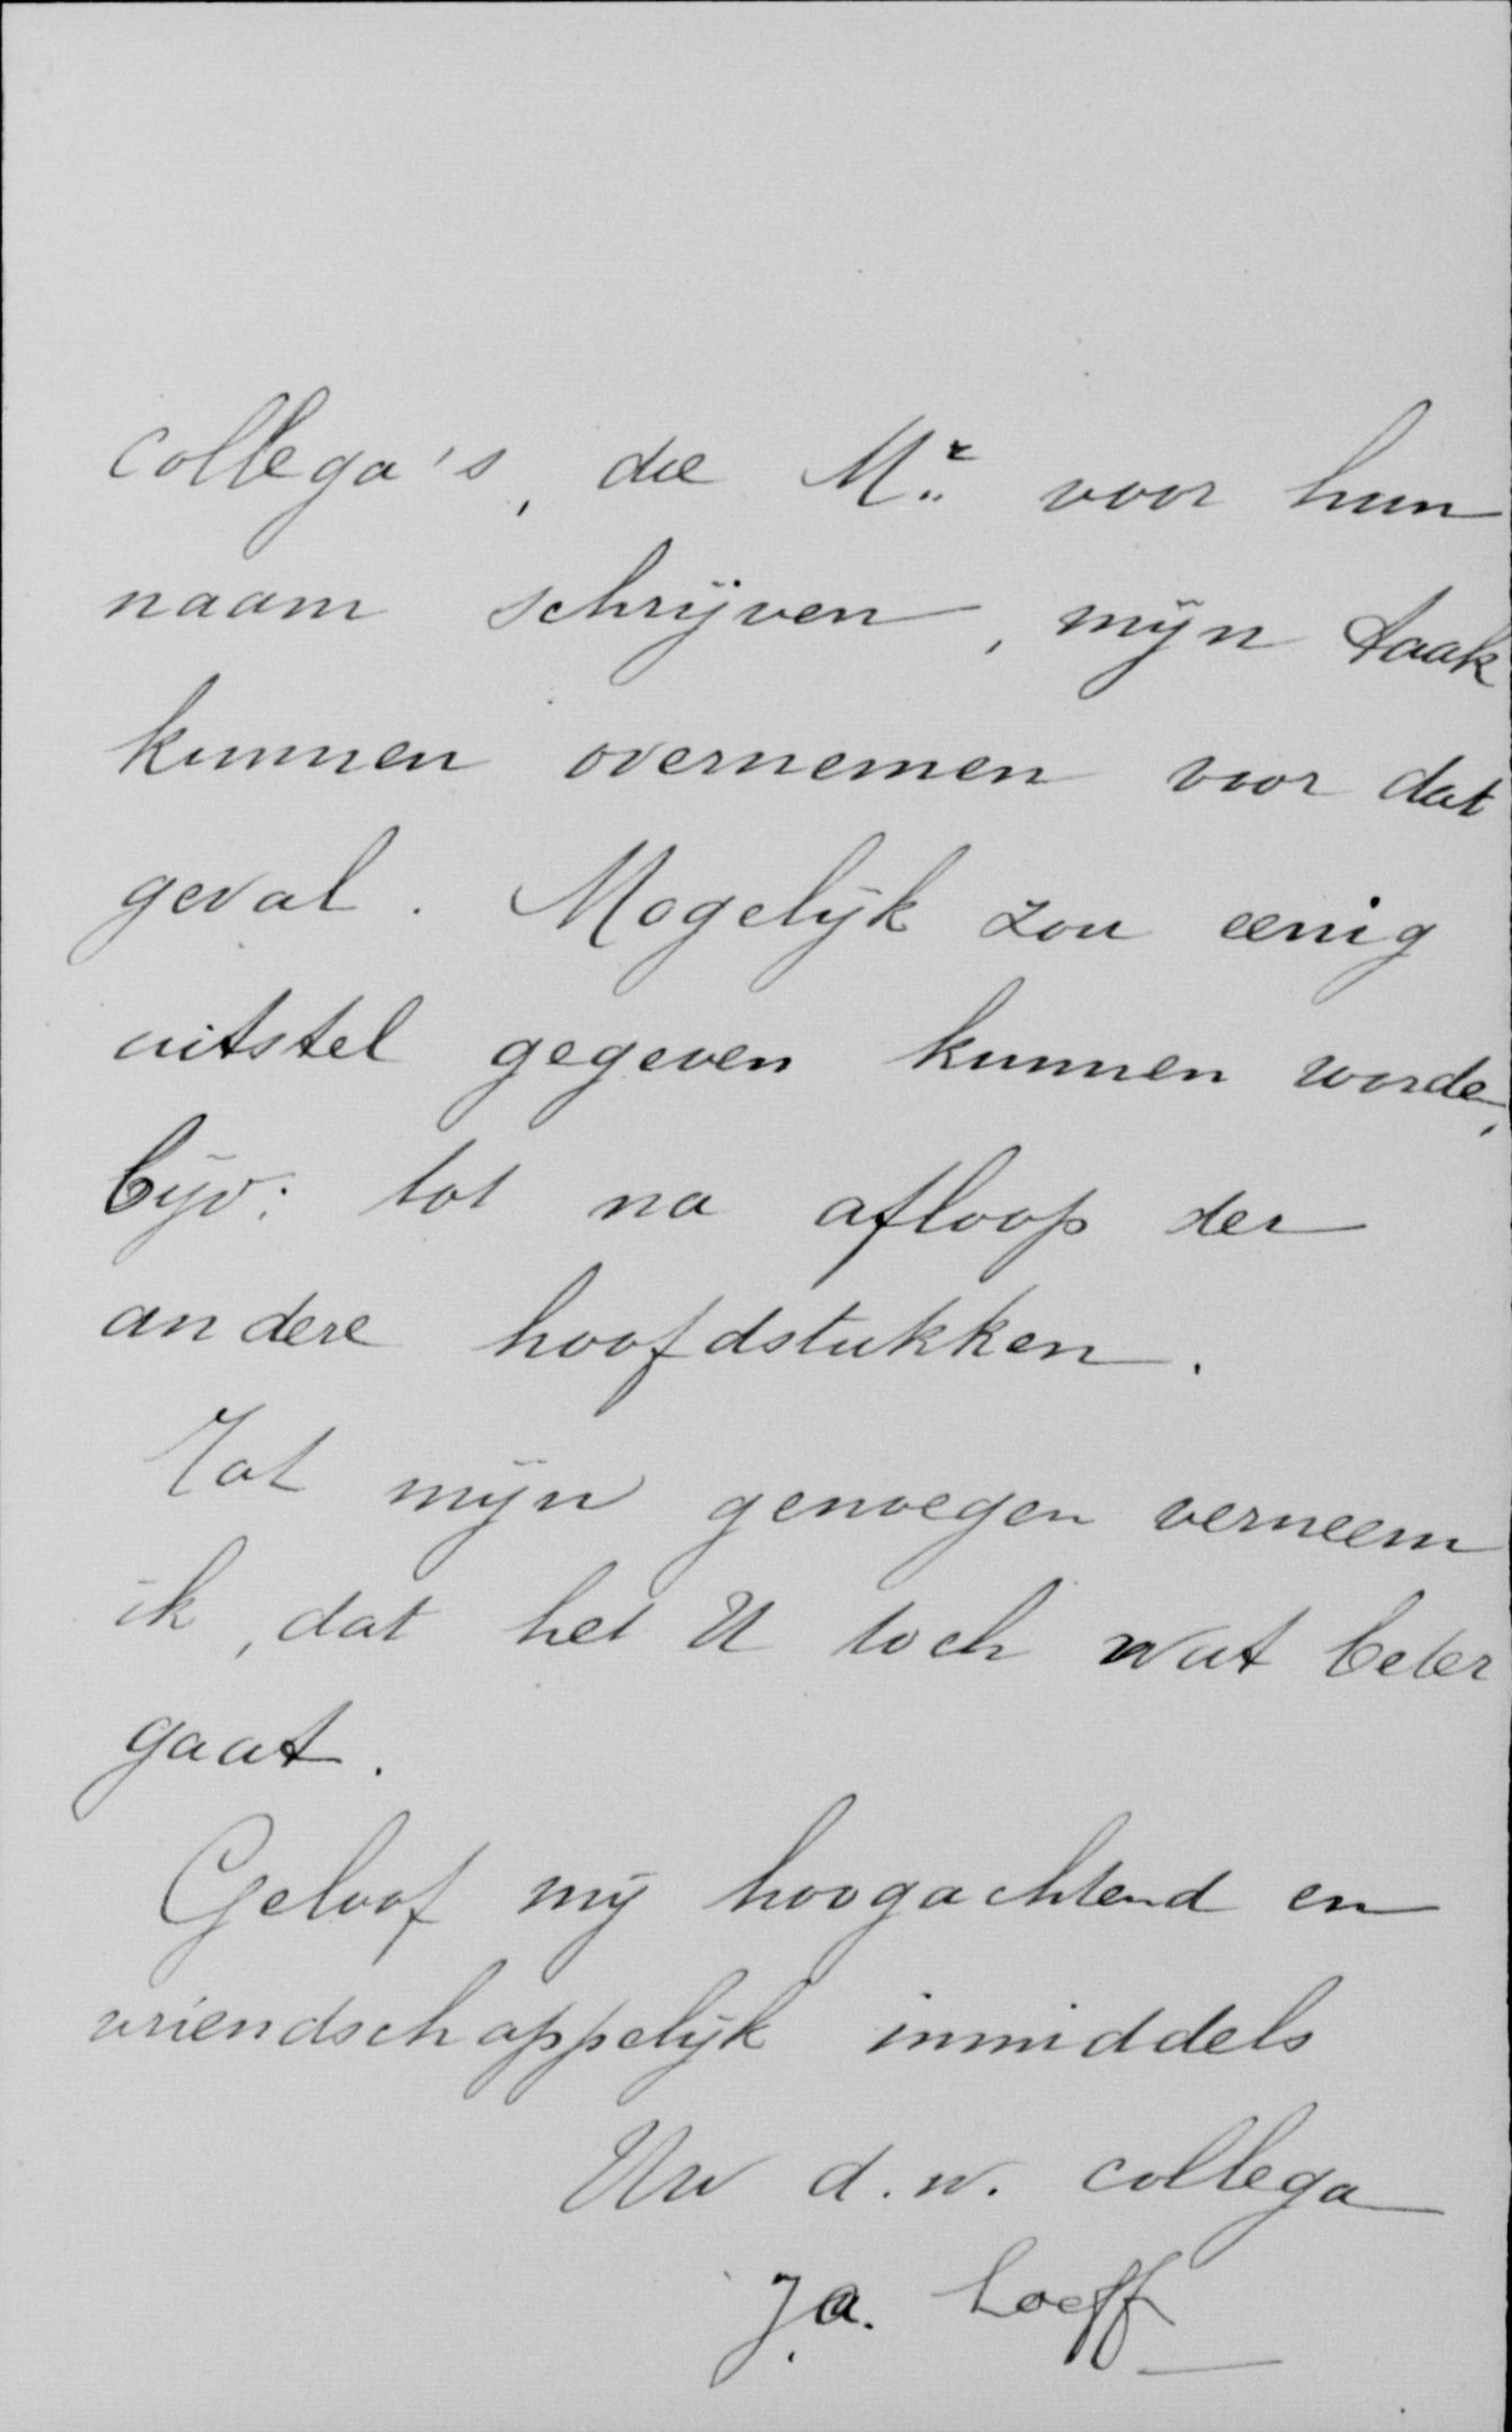 collega's, die Mr. voor hun
naam schrijven, mijn taak
kunnen overnemen voor dat
geval. Mogelijk zou eenig
uitstel gegeven kunnen worden,
bijv: tot na afloop der
andere hoofdstukken.
Tot mijn genoegen verneem
ik, dat het U toch wat beter
gaat.
Geloof mij hoogachtend en
vriendschappelijk inmiddels
Uw d.w. collega
J.A. Loeff